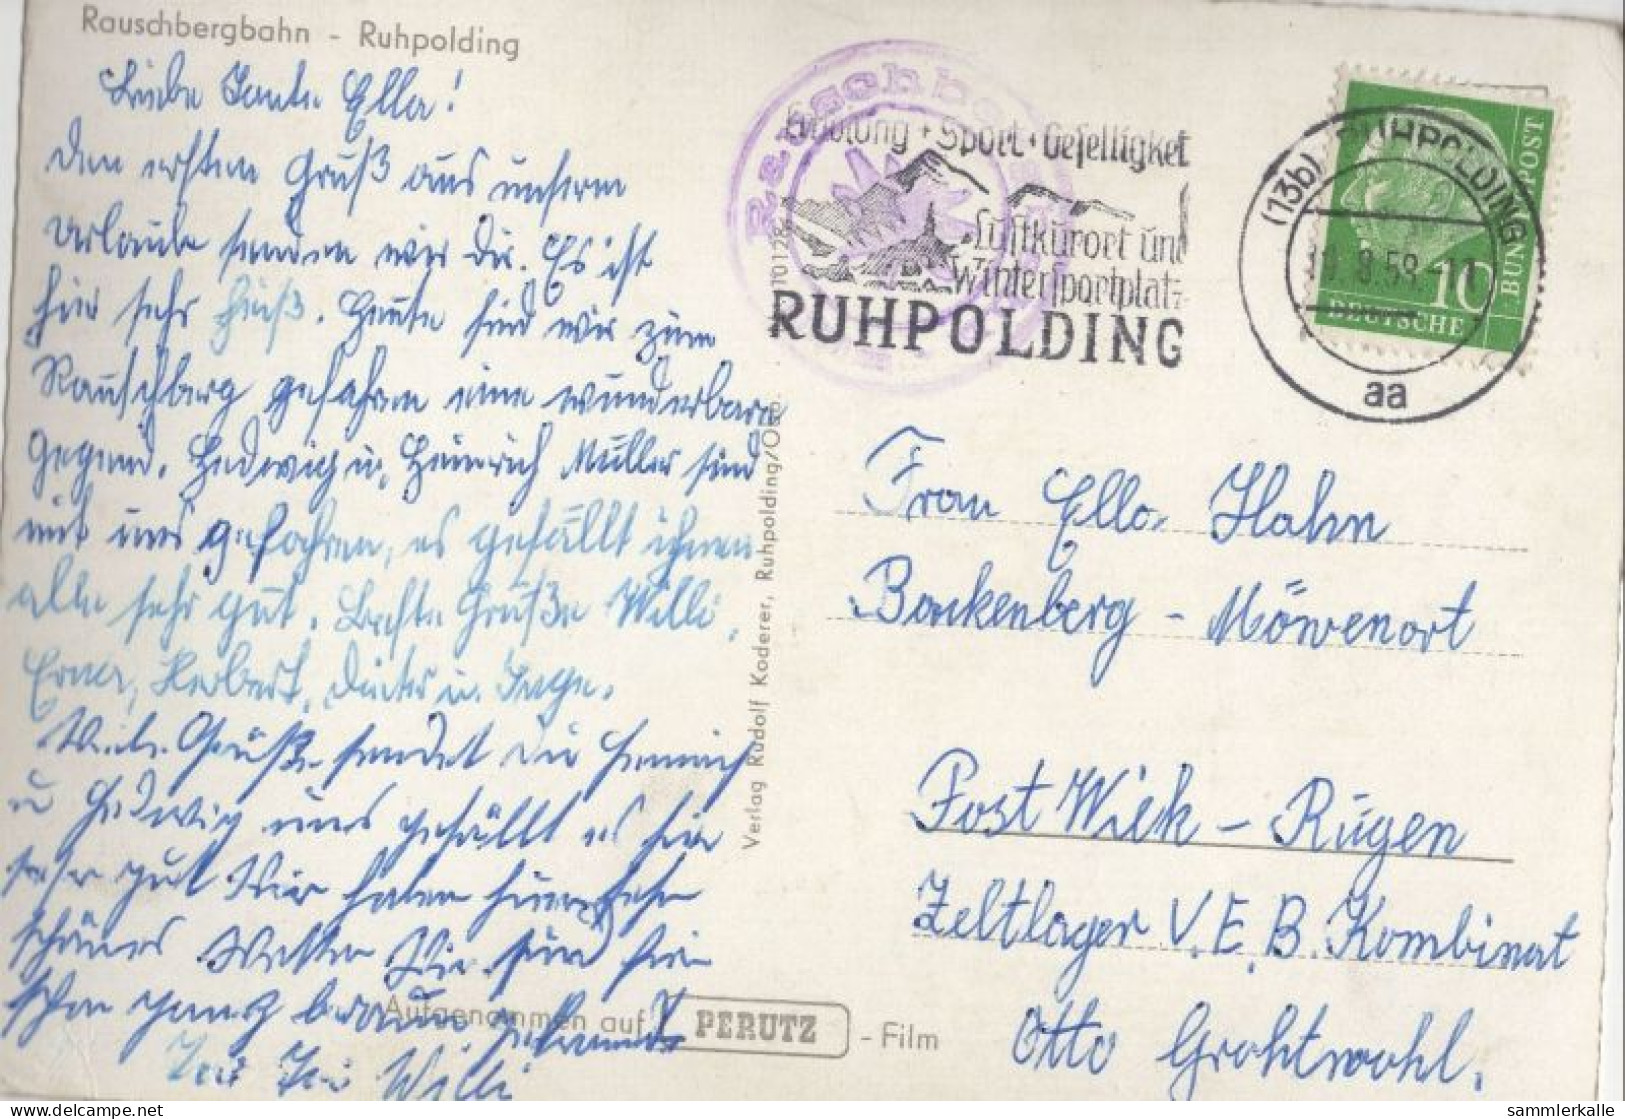 Rauschbergbahn - Ruhpolding
Liebe Tante Ella!
Den ersten Gruß aus unserm
Urlaube senden wir Dir. Es ist
hier sehr heiß. Heute sind wir zum
Rauschberg gefahren eine wunderbare
Gegend. Hedwig u. Heinrich Müller sind
mit uns gefahren, es gefällt ihnen
alle sehr gut. Beste Grüße Willi,
Erna, Herbert, Dieter u. Inge.
Viele Grüße sendet Dir Heinrich
u Hedwig uns gefällt es hier
sehr gut Wir haben hier sehr
schönes Wetter Wir sind hier
schon ganz braun gebrannt
Willi
Aufgenommen auf PERUTZ - Film
Verlag Rudolf Koderer, Ruhpolding/Obb.
110128
Rauschberg
Erholung + Sport + Geselligkeit
Luftkurort und
Wintersportplatz
RUHPOLDING
(13b) RUHPOLDING
8.58.-11
aa
10
DEUTSCHE
BUNDESPOST
Frau Ella Hahn
Bakenberg - Möwenort
Post Wiek - Rügen
Zeltlager V.E.B. Kombinat
Otto Grohtwohl.
sammlerkalle
www.delcampe.net